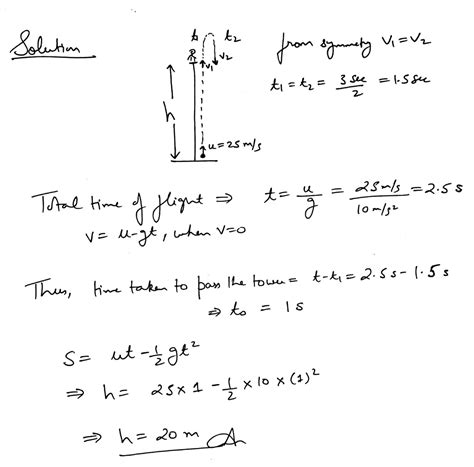 Solution
t₁ t₂
v₁ v₂
h
u = 25 m/s
from symmetry v₁ = v₂
t₁ = t₂ = 3 sec / 2 = 1.5 sec
Total time of flight ⇒ t = u/g = 25 m/s / 10 m/s² = 2.5 s
v = u - gt, when v=0
Thus, time taken to pass the tower = t - t₁ = 2.5 s - 1.5 s
⇒ t₀ = 1 s
S = ut - 1/2 gt²
⇒ h = 25 × 1 - 1/2 × 10 × (1)²
⇒ h = 20 m